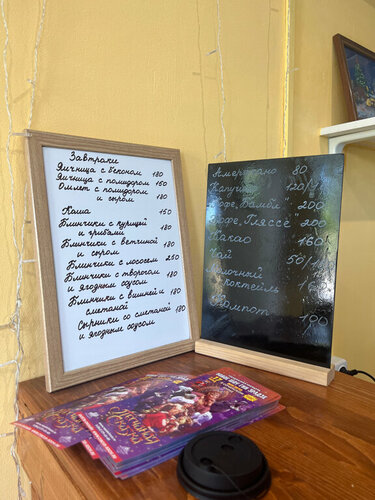 Завтраки
Яичница с беконом 180
Яичница с помидором 150
Омлет с помидором
и сыром 180
Каша 150
Блинчики с курицей
и грибами 180
Блинчики с ветчиной
и сыром 180
Блинчики с лососем 250
Блинчики с творогом
и ягодным соусом 180
Блинчики с вишней и
сметаной 180
Сырники со сметаной
и ягодным соусом 180
Американо 80
Капучино 120/
Кофе „Бамбл" 200
Кофе „Гляссе" 200
Какао 160
Чай 50/
Молочный
коктейль
Компот 100